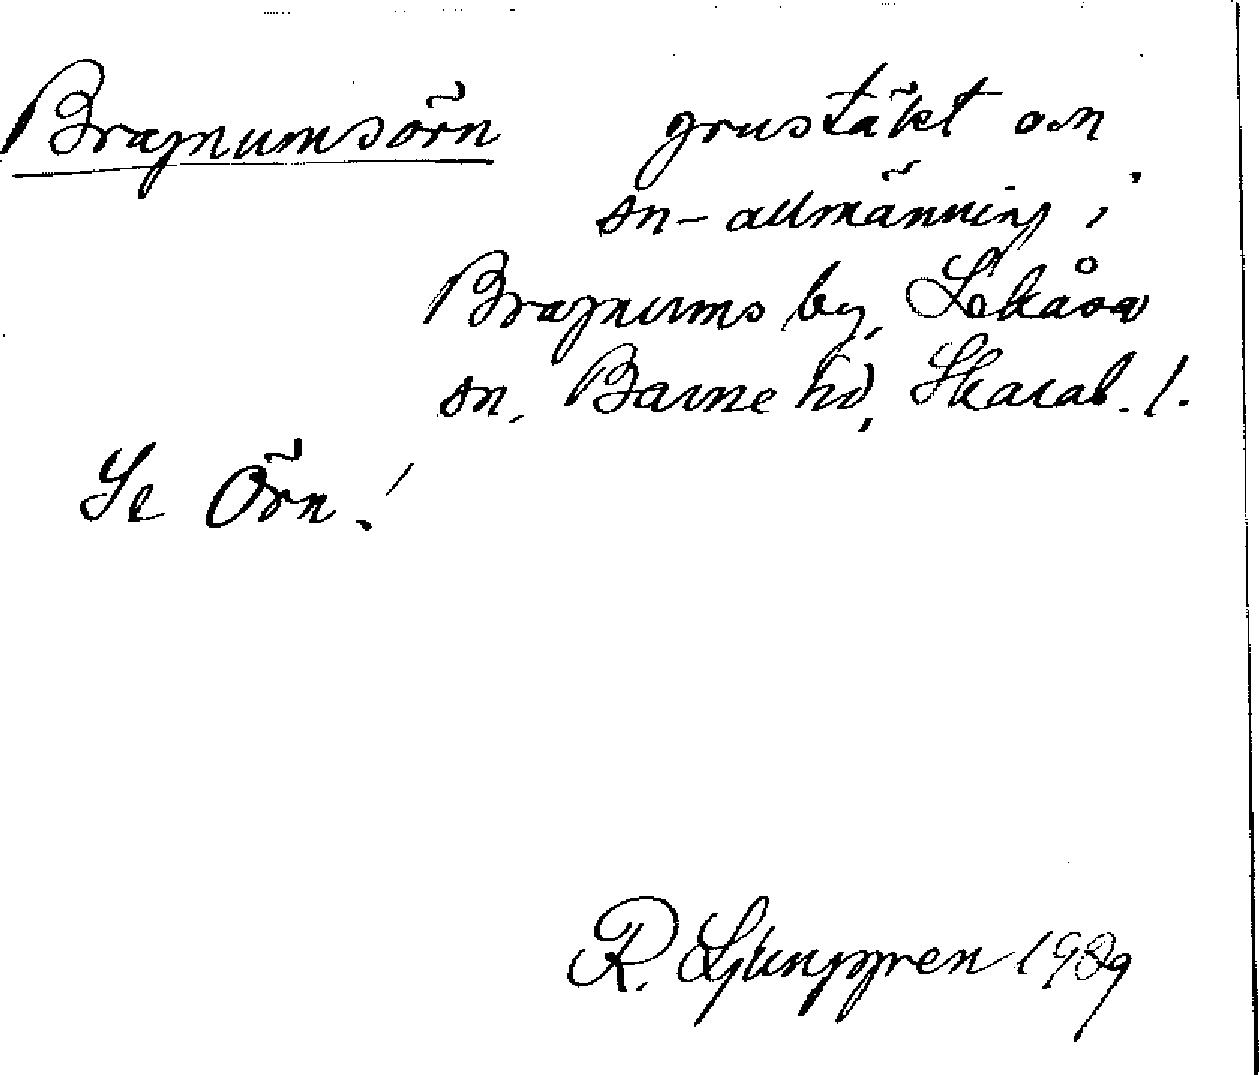 Bragnumsörn grustäkt on
sn-allmänning i
Bragnums by, Lekåsa
sn, Barne hd, Skarab. l.
Se Örn!
R. Ljunggren 1989